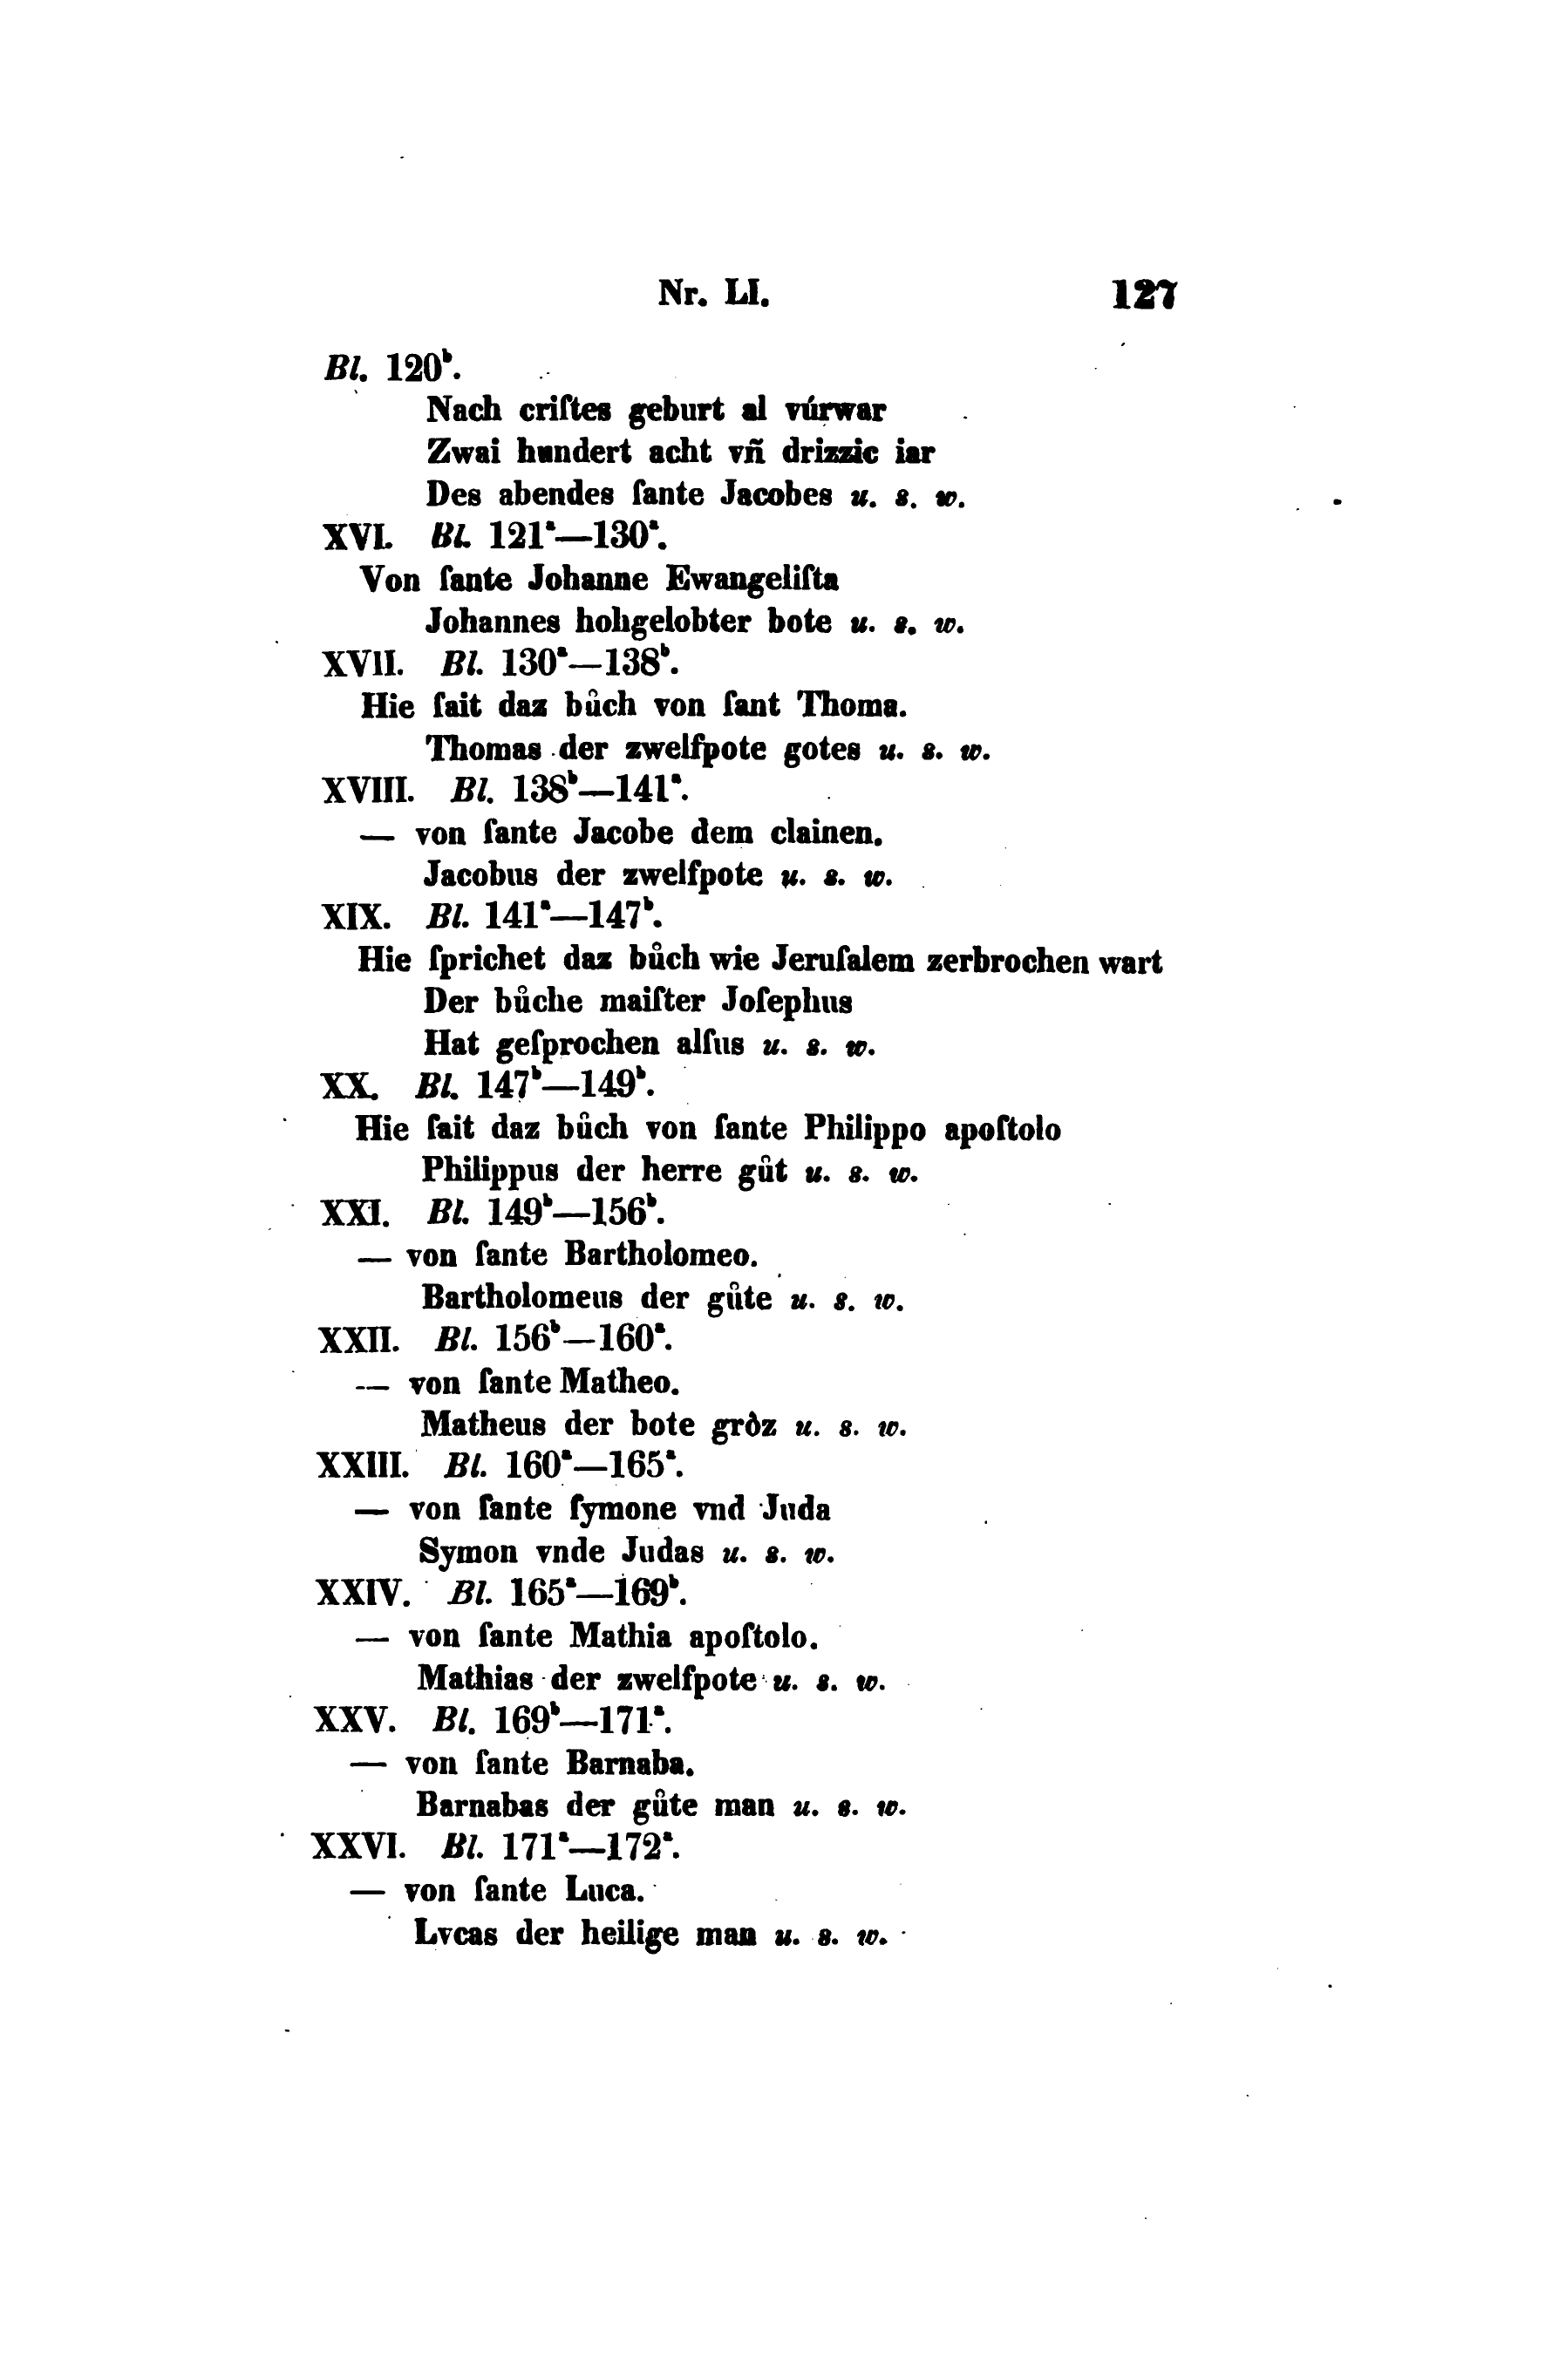 Nr. LI. 127
Bl. 120ᵇ.
Nach criſtes geburt al vúrwar
Zwai hundert acht vñ drizzic iar
Des abendes ſante Jacobes u. s. w.
XVI. Bl. 121ᵃ—130ᵃ.
Von ſante Johanne Ewangeliſta
Johannes hohgelobter bote u. s. w.
XVII. Bl. 130ᵃ—138ᵇ.
Hie ſait daz bůch von ſant Thoma.
Thomas der zwelfpote gotes u. s. w.
XVIII. Bl. 138ᵇ—141ᵃ.
— von ſante Jacobe dem clainen.
Jacobus der zwelfpote u. s. w.
XIX. Bl. 141ᵃ—147ᵇ.
Hie ſprichet daz bůch wie Jeruſalem zerbrochen wart
Der bůche maiſter Joſephus
Hat geſprochen alſus u. s. w.
XX. Bl. 147ᵇ—149ᵇ.
Hie ſait daz bůch von ſante Philippo apoſtolo
Philippus der herre gůt u. s. w.
XXI. Bl. 149ᵇ—156ᵇ.
— von ſante Bartholomeo.
Bartholomeus der gůte u. s. w.
XXII. Bl. 156ᵇ—160ᵃ.
— von ſante Matheo.
Matheus der bote gròz u. s. w.
XXIII. Bl. 160ᵃ—165ᵃ.
— von ſante ſymone vnd Juda
Symon vnde Judas u. s. w.
XXIV. Bl. 165ᵃ—169ᵇ.
— von ſante Mathia apoſtolo.
Mathias der zwelfpote u. s. w.
XXV. Bl. 169ᵇ—171ᵃ.
— von ſante Barnaba.
Barnabas der gůte man u. s. w.
XXVI. Bl. 171ᵃ—172ᵃ.
— von ſante Luca.
Lvcas der heilige man u. s. w.